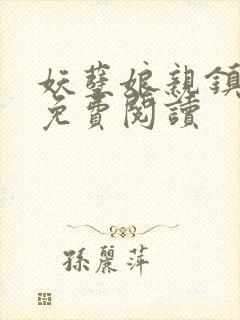 妖孽娘親鎮
免費閱讀
孫麗萍